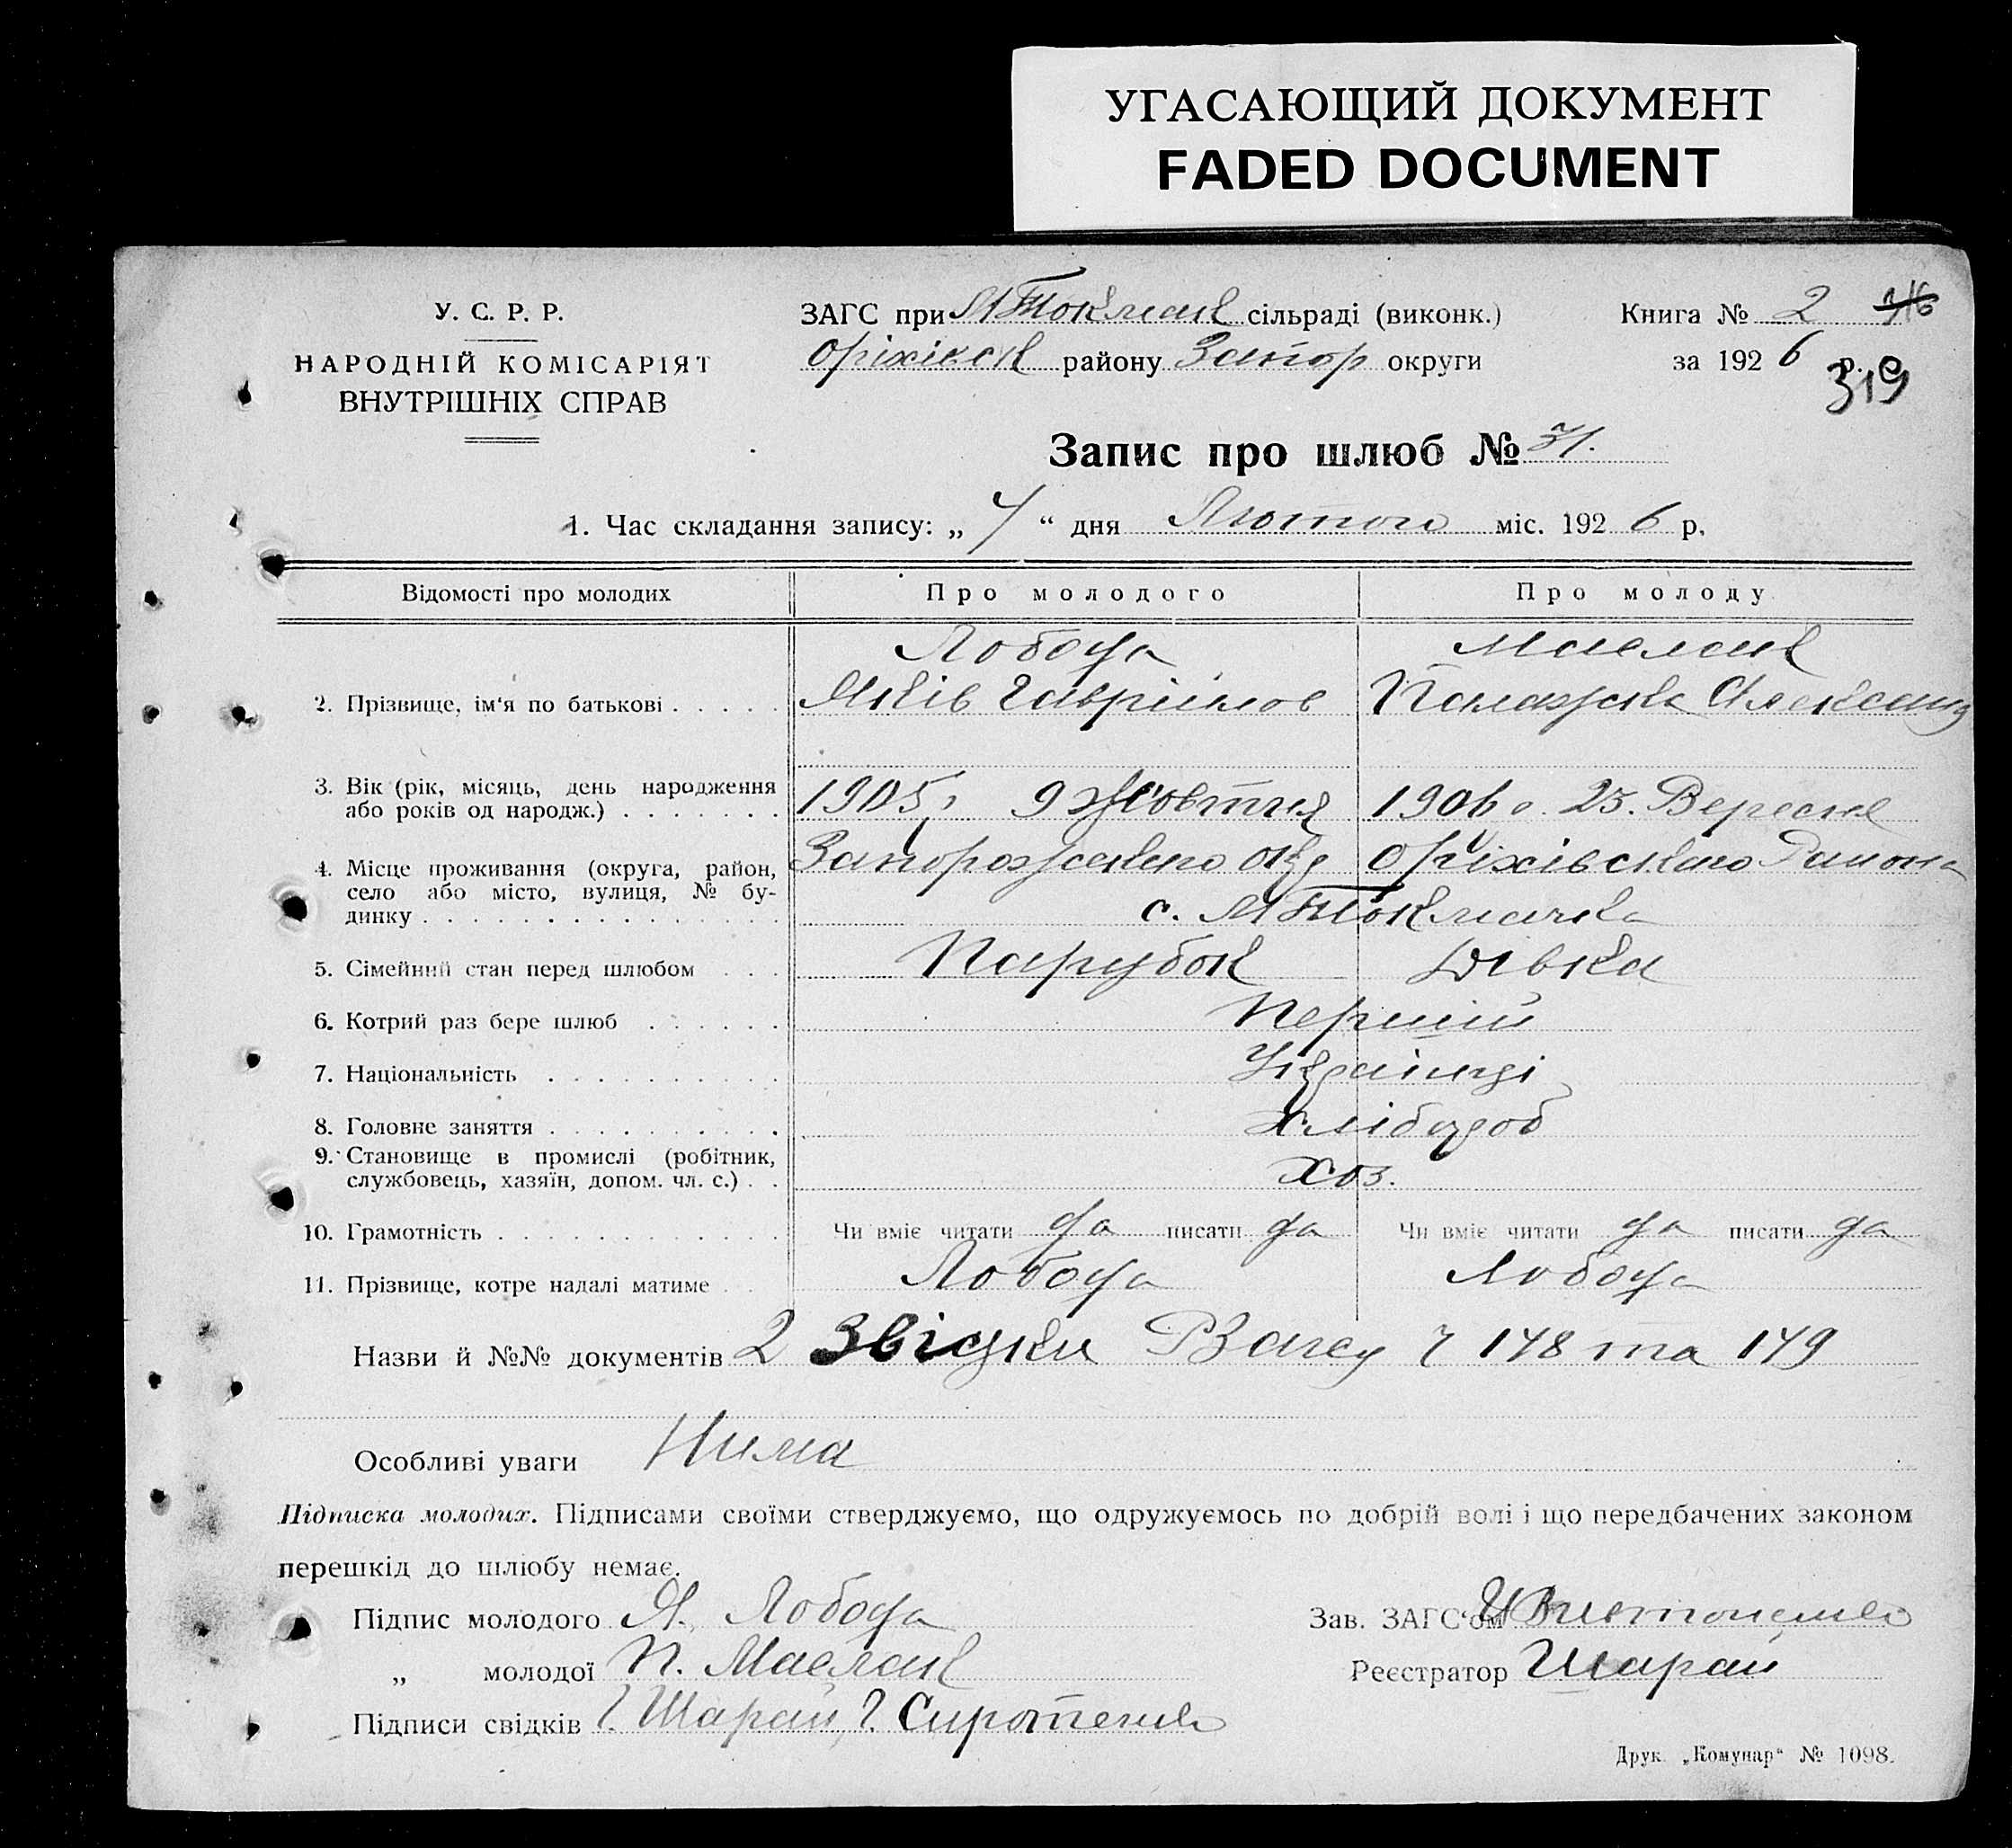 УГАСАЮЩИЙ ДОКУМЕНТ
FADED DOCUMENT
У. С. Р. Р.
НАРОДНІЙ КОМІСАРІЯТ
ВНУТРІШНІХ СПРАВ
ЗАГС при МТокмак сільраді (виконк.)
Оріхівськ району Запор округи
Книга № 2
за 1926 р.
319
Запис про шлюб № 31.
1. Час складання запису: „ 4 “ дня Лютого міс. 1926 р.
Відомості про молодих Про молодого Про молоду
Лобода Маслак
2. Прізвище, ім'я по батькові Яків Гаврилов Палажка Олександ
3. Вік (рік, місяць, день народження або років од народж.) 1905, 9 Жовтня 1906 23. Вересня
4. Місце проживання (округа, район, Запорожсько окр Оріхівсько Району
село або місто, вулиця, № бу-
динку с. МТокмачка
5. Сімейний стан перед шлюбом Парубок Дівка
6. Котрий раз бере шлюб Перший
7. Національність Українці
8. Головне заняття Хлібороб
9. Становище в промислі (робітник,
службовець, хазяїн, допом. чл. с.) Хоз.
10. Грамотність Чи вміє читати да писати да Чи вміє читати да писати да
11. Прізвище, котре надалі матиме Лобода Лобода
Назви й №№ документів 2 Звідки РЗагсу ч 148 та 149
Особливі уваги Нима
Підписка молодих. Підписами своїми стверджуємо, що одружуємось по добрій волі і що передбачених законом
перешкід до шлюбу немає.
Підпис молодого Я. Лобода Зав. ЗАГС'ом
„ молодої П. Маслак Реєстратор Шарай
Підписи свідків Г. Шарай, Г. Сиротенко
Друк. „Комунар“ № 1098.